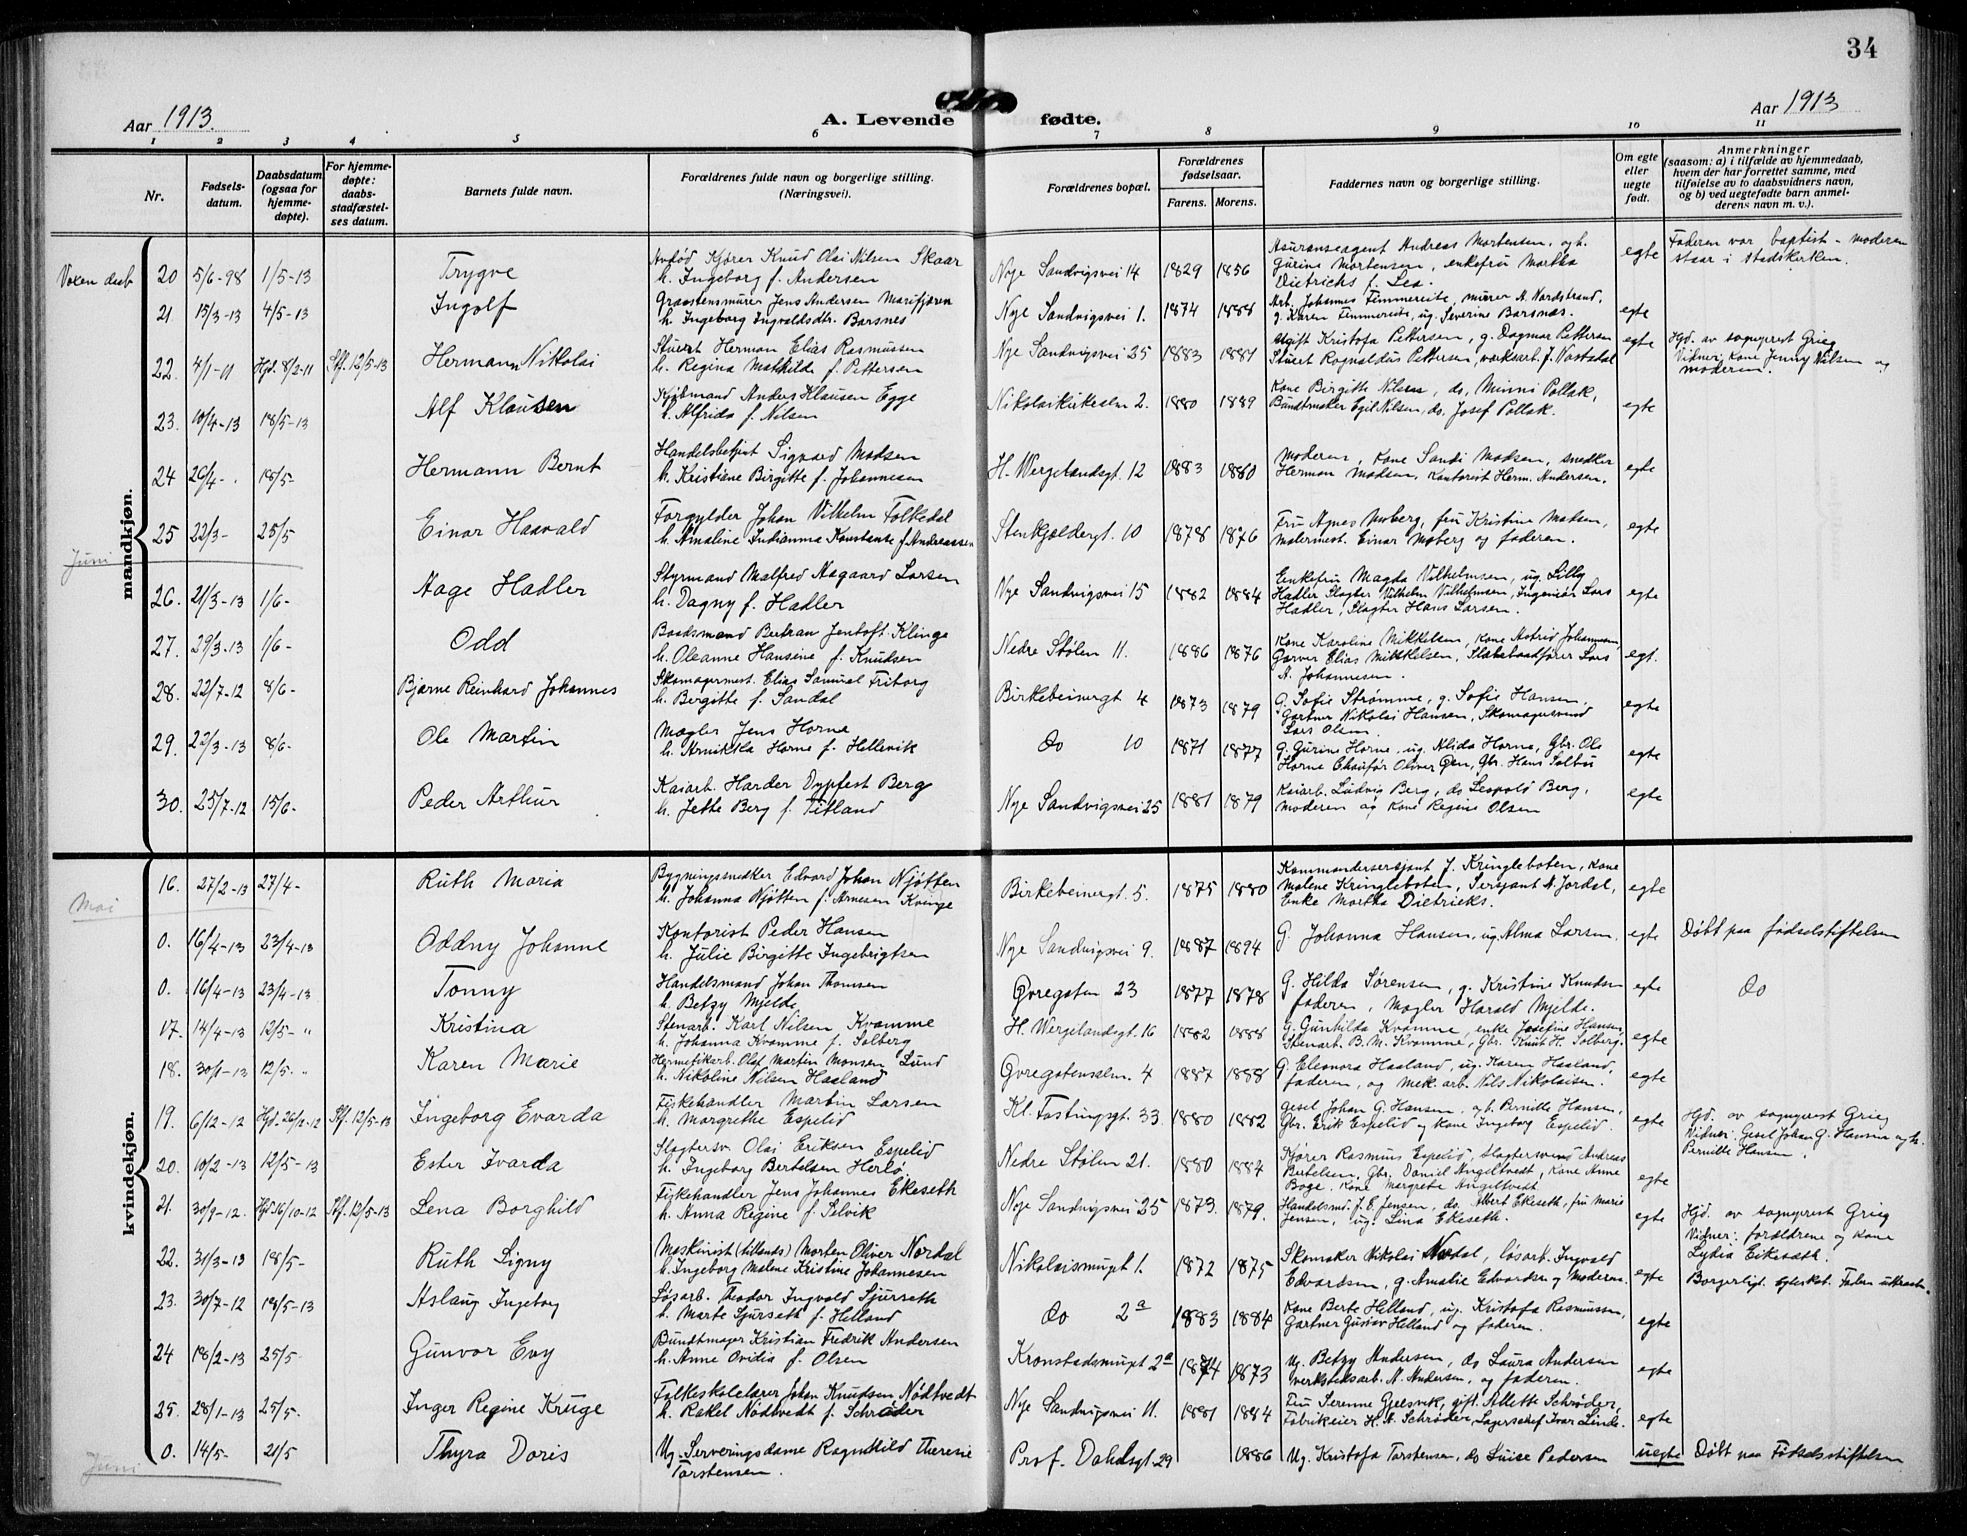 34
Aar 1913.
A. Levende fødte.
Aar 1913
1 2 3 4 5 6 7 8 9 10 11
Nr.
Fødsels-
datum.
Daabsdatum
(ogsaa for
hjemme-
døpte).
For hjemme-
døpte:
daabs-
stadfæstel-
ses datum.
Barnets fulde navn.
Forældrenes fulde navn og borgerlige stilling.
(Næringsvei).
Forældrenes bopæl.
Forældrenes
fødselsaar.
Farens. Morens.
Faddernes navn og borgerlige stilling.
Om egte
eller
uegte
født.
Anmerkninger
(saasom: a) i tilfælde av hjemmedaab,
hvem der har forrettet samme, med
tilføielse av to daabsvidners navn,
og b) ved uegtefødte barn anmel-
derens navn m. v.).
mandkjøn.
Voxen daab 20 5/6-98 1/5-13 Trygve
Avdød Kjører Knud Olai Nilsen Skaar
h. Ingeborg f. Andersen
Nye Sandvigsvei 14 1829 1856
Asuranseagent Andreas Mortensen, og h.
Gurine Mortensen, enkefru Martha
Dietrichs f. Lea.
egte
Faderen var baptist - moderen
staar i statskirken.
21 15/3-13 4/5-13 Ingolf
Graastensmurer Jens Andersen Marifjæren
h. Ingeborg Ingvaldsdtr. Barsnes
Nye Sandvigsvei 1. 1874 1888
Arb. Johannes Timmereite, murer A. Nordstrand,
g. Karen Timmereite, ug. Severine Barsnæs.
egte
22. 4/1-11 Hjd. 8/2-11 Stf. 12/5-13 Hermann Nikolai
Stuert Herman Elias Rasmussen
h. Regina Mathilde f. Pettersen
Nye Sandvigsvei 25 1883 1881
ugift Kristofa Pettersen, g. Dagmar Pettersen
Stuert Rognaldus Pettersen, værksarb. J. Vastdal
egte
Hjd. av sogneprest Grieg
Vidner: Kone Jenny Nilsen og
moderen.
23. 10/4-13 18/5-13 Alf Klausen
Kjøbmand Anders Klausen Egge
h. Alfrida f. Nilsen
Nikolaikirkealm 2. 1880 1889
Kone Birgitte Nilsen, do. Minni Pollak,
Bundtmaker Egil Nilsen, do. Josef Pollak.
egte
24 26/4- 18/5- Hermann Bernt
Handelsbetjent Sigvard Madsen
h. Kristiane Birgitte f. Johannesen
H. Wergelandsgt. 12 1883 1880
Moderen, Kone Sandi Madsen, snedker
Herman Madsen, Kontorist Herm. Andersen.
egte
25 22/3- 25/5 Einar Haavald
Forgylder Johan Vilhelm Folkedal
h. Amaline Indianna Konstanse f. Andreassen
Stenkjeldergt. 10 1878 1876
Fru Agnes Moberg, fru Kristine Madsen,
Malermest. Einar Moberg og faderen.
egte
Juni
26. 21/3-13 1/6- Aage Hadler
Styrmand Malfred Aagaard Larsen
h. Dagny f. Hadler
Nye Sandvigsvei 15 1882 1884
Enkefru Magda Vilhelmsen, ug. Lilly
Hadler Slagter Vilhelm Vilhelmsen, Ingeniør Lars
Hadler, Slagter Hans Larsen.
egte
27. 29/3-13 1/6- Odd
Baadsmand Bertran Jentoft Klinge
h. Oleanne Hansine f. Knudsen
Nedre Stølen 11. 1886 1876
Kone Karoline Mikkelsen, Kone Astrid Johannesen,
Garver Elias Mikkelsen, Lars
A. Johannesen.
egt.
28. 22/7-12 8/6- Bjarne Reinhard Johannes
Skomagermest. Elias Samuel Friborg
h. Bergitte f. Sandal
Birkebeinergt 4 1873 1879
G. Sofie Strømme, g. Sofie Hansen
Gartner Nikolai Hansen, Skomagersvend
Lars Olsen.
egte
29. 22/3-13 8/6- Ole Martin
Mægler Jens Horne
h. Annikka Horne f. Hellevik
Do 10 1871 1877
G. Gurine Horne, ug. Alida Horne, Gbr. Ole
Horne Chaufør Oliver Øen, Gbr. Hans Solbu
egte
30. 25/7-12 15/6- Peder Arthur
Kaiarb. Harder Dypfest Berg
h. Jette Berg f. Titland
Nye Sandvigsvei 25 1881 1879
Kaiarb. Ludvig Berg, do Leopold Berg,
moderen og Kone Regine Olsen
egte
kvindekjøn.
16. 27/2-13 27/4- Ruth Maria
Bygningssnedker Edvard Johan Njøtten
h. Johanna Njøtten f. Arnesen Kvinge
Birkebeinergt. 5. 1875 1880
Kommandersersjant J. Kringleboten, kone
Malene Kringleboten, Sersjant N. Jordal,
Enke Martha Dietrichs.
egte
Mai
0. 16/4-13 23/4-13 Oddny Johanne
Kontorist Peder Hansen
h. Julie Birgitte Ingebrigtsen
Nye Sandvigsvei 9. 1887 1894
G. Johanna Hansen, ug. Alma Larsen.
egte
Døbt paa fødselstiftelsen
0. 16/4-13 23/4-13 Tonny
Handelsmand Johan Thomsen
h. Betzy Mjelde
Øvregaten 23 1877 1878
G. Hilda Sørensen, g. Kristine Knudsen
faderen, Mægler Harald Mjelde.
egte
Do
17. 14/4-13 12/5- " Kristina
Stenarb. Karl Nilsen Kvamme
h. Johanna Kvamme f. Solberg
H. Wergelandsgt. 16 1882 1888
G. Gunhilda Kvamme, enke Josefine Hansen,
Stenarb. B. M. Kvamme, Gbr. Knut H. Solberg.
egte
18. 30/1-13 12/5. " Karen Marie
Hermetikarb. Olaf Martin Monsen Lund
h. Nikoline Nilsen Haaland
Øvregatensalm. 4 1887 1888
G. Eleonora Haaland, ug. Karen Haaland,
faderen, og mek. arb. Nils Nikolaisen.
egte
19. 6/12-12 Hjd. 26/12-12 Stf. 12/5-13 Ingeborg Evarda
Fiskehandler Martin Larsen
h. Margrethe Espelid
Kl. Fastingsgt. 33 1880 1882
Gesel Johan G. Hansen, og h. Pernille Hansen,
Gbr. Erik Espelid og kone Ingeborg Espelid.
egte
Hjd. av sogneprest Grieg
Vidner: Gesel Johan G. Hansen og h.
Pernille Hansen.
20. 10/2-13 12/5-13 Ester Ivarda
Slagtersv. Olai Eriksen Espelid
h. Ingeborg Bertelsen Herlø,
Nedre Stølen 21. 1880 1887
Kjører Rasmus Espelid, slagtersvend Andreas
Bertelsen, Gbr. Daniel Angeltvedt, Kone Anne
Boge, Kone Margrete Angeltvedt
egte
21. 30/9-12. Hjd. 16/10-12 Stf. 12/5-13 Lena Borghild
Fiskehandler Jens Johannes Ekeseth
h. Anna Regine f. Selvik
Nye Sandvigsvei 25 1873. 1879.
Handelsmd. J. E. Jensen, do. Albert Ekeseth, fru Marie
Jensen, ug. Lina Ekeseth.
egte
Hjd. av sogneprest Grieg
Vidner: forældrene og Kone
Lydia Eikesæth.
22. 31/3-13 18/5- Ruth Signy
Maskinist (tillands) Morten Oliver Nordal
h. Ingeborg Malene Kristine Johannesen
Nikolaismugt 1. 1872 1875
Skomaker Nikolai Nordal, løsarb. Ingvald
Edvardsen, g. Amalie Edvardsen og Moderen.
egte
Borgerligt egteskab. Faderen
23. 30/7-12 18/5-13 Aslaug Ingeborg
Løsarb. Theodor Ingvald Sjurseth
h. Marte Sjurseth f. Helland
Do 2a 1883 1884
Kone Berte Helland, ug. Kristofa Rasmussen,
Gartner Gustav Helland og faderen.
egte
24 18/2-13 25/5 Gunvor Evy
Bundtmager Kristian Fredrik Andersen
h. Anne Ovidia f. Olsen
Kronstadsmugt 2a 1874 1873
Ug. Betzy Andersen, do Laura Andersen
verkstedsarb. A. Andersen, og faderen.
egte
25. 28/1-13 25/5. Inger Regine Kruge
Folkeskolelærer Johan Knudsen Nødtvedt
h. Rakel Nødtvedt f. Schrøder
Nye Sandvigsvei 11. 1881 1884
Fru Serenne Gjesvik, gift. Allette Schrøder,
Fabrikeier H. A. Schrøder, Lagerchef Ivar Linde.
egte
0. 14/5- 21/5 Thyra Doris
Ug. Serveringsdame Ragnhild Theresie
Torstensen.
Prof. Dahlsgt 29 1886
Ug. Kristofa Torstensen, do Luise Pedersen
uegte
Døbt paa Fødselsstiftelsen
Juni